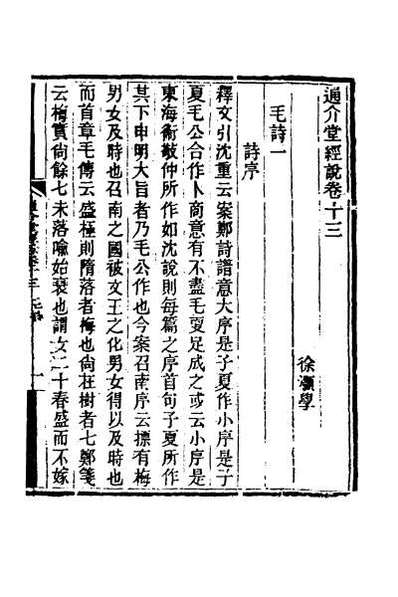 通介堂經說卷十三
徐灝學
毛詩一
詩序
釋文引沈重云案鄭詩譜意大序是子夏作小序是子
夏毛公合作卜商意有不盡毛更足成之或云小序是
東海衛敬仲所作如沈說則每篇之序首句子夏所作
其下申明大旨者乃毛公作也今案召南序云摽有梅
男女及時也召南之國被文王之化男女得以及時也
而首章毛傳云盛極則隋落者梅也尙在樹者七鄭箋
云梅實尙餘七未落喻始衰也謂女二十春盛而不嫁